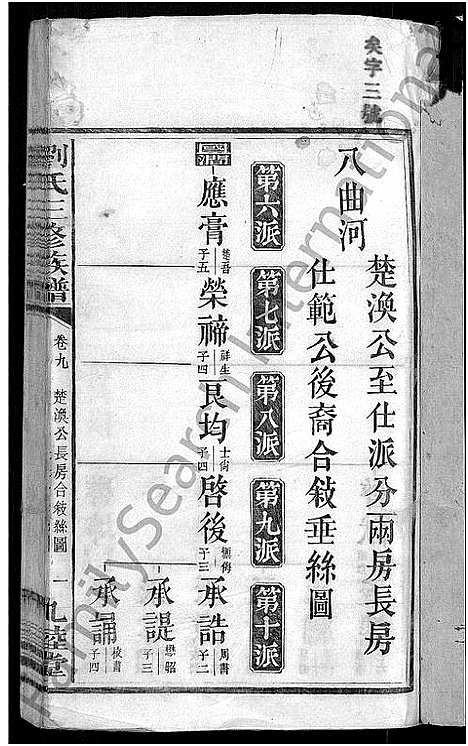 矣字三號
八曲河
楚渙公至仕派分兩房長房
仕範公後裔合敍垂絲圖
第六派
第七派
第八派
第九派
第十派
應膏 楚吾 子五
榮禘 祥生 子四
艮均 士尚 子四
啓後 子三
承誥 周書 子二
承諟 懋昭 子三
承誦 子四
劉氏三修族譜
卷九
楚渙公長房合敍絲圖
一
FamilySearch International